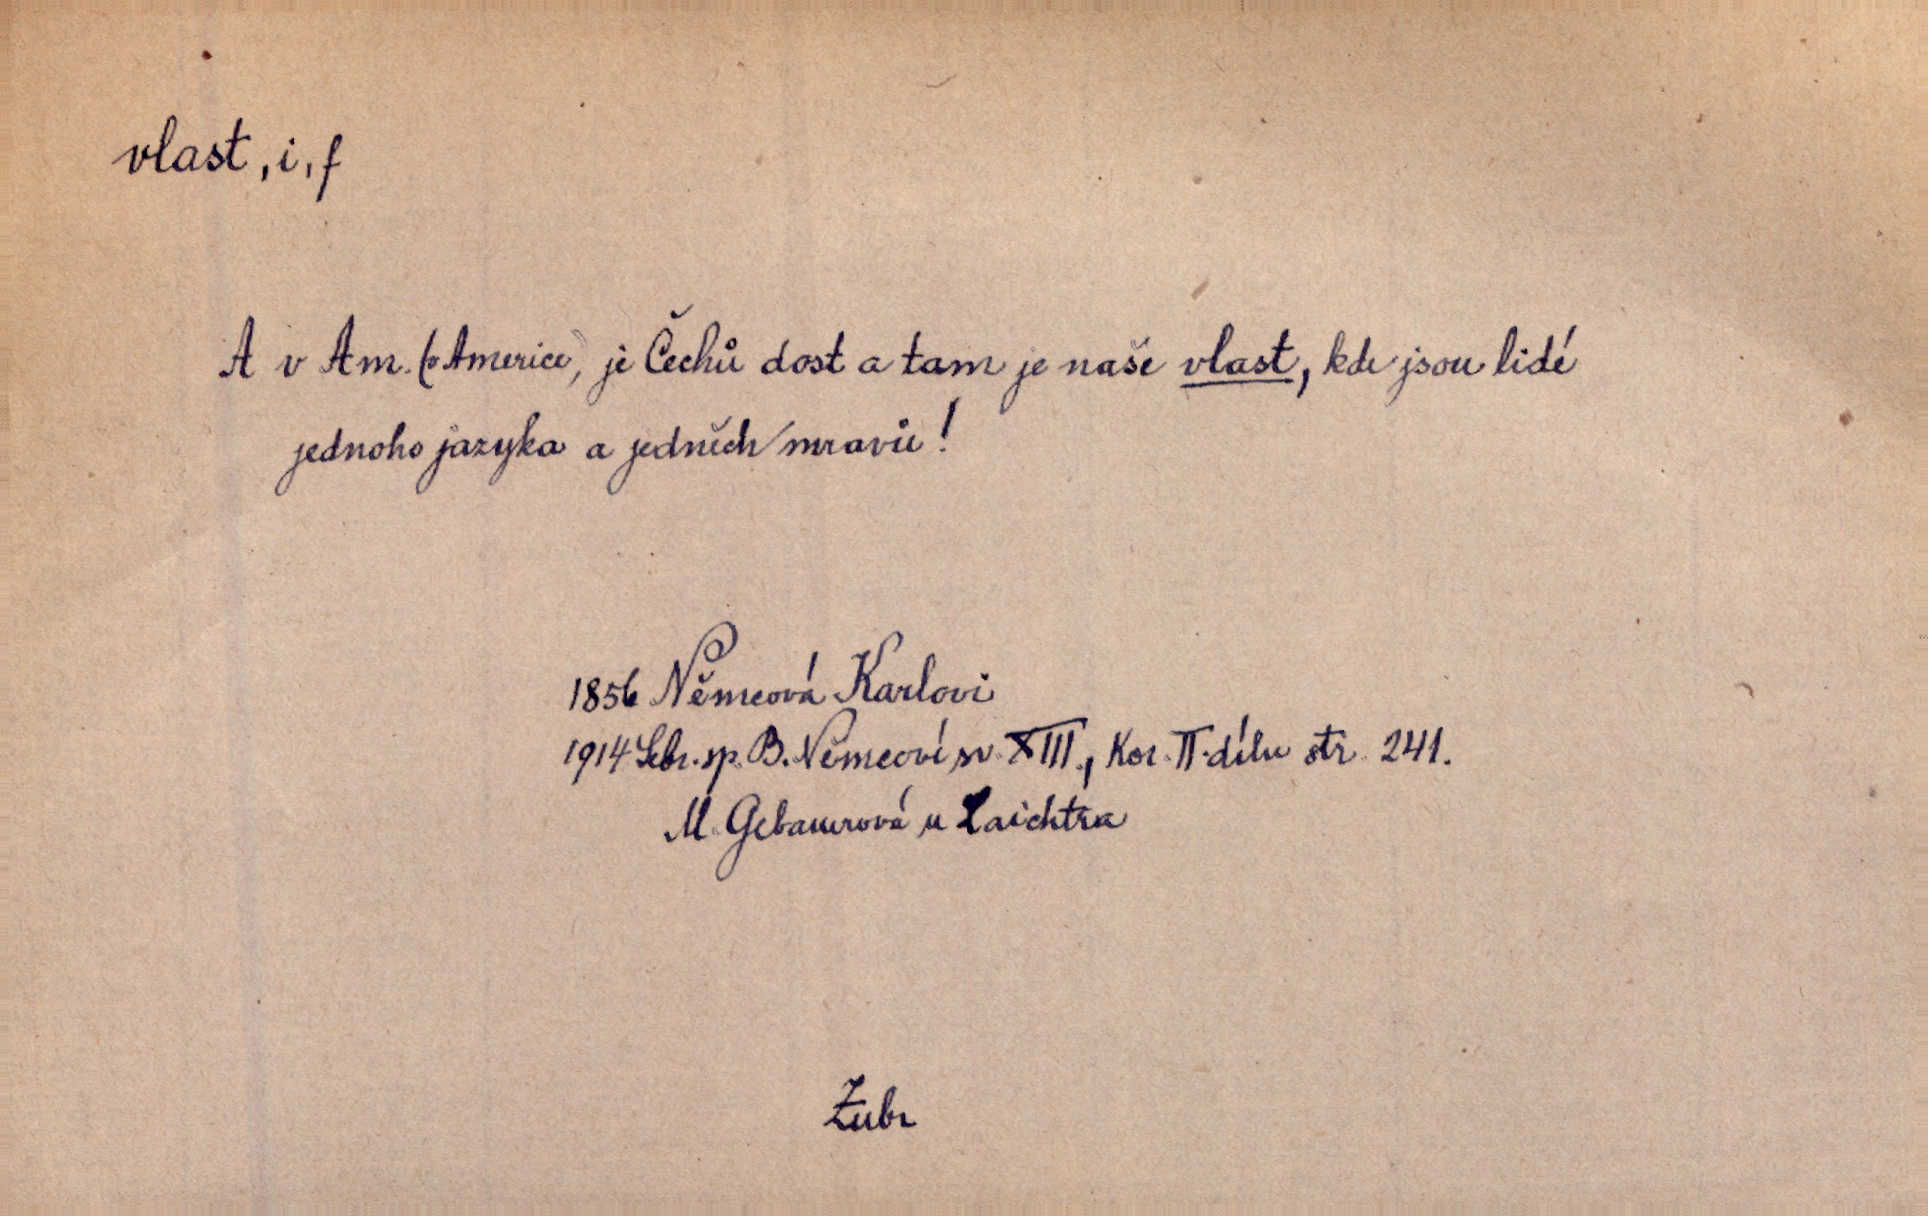 vlast, i, f
A v Am. (v Americe) je Čechů dost a tam je naše vlast, kde jsou lidé
jednoho jazyka a jedněch mravů!
1856 Němcová Karlovi
1914 Sebr. sp. B. Němcové sv. XIII., Kor. II. dílu str. 241.
M. Gebauerová u Laichtra
Zubr